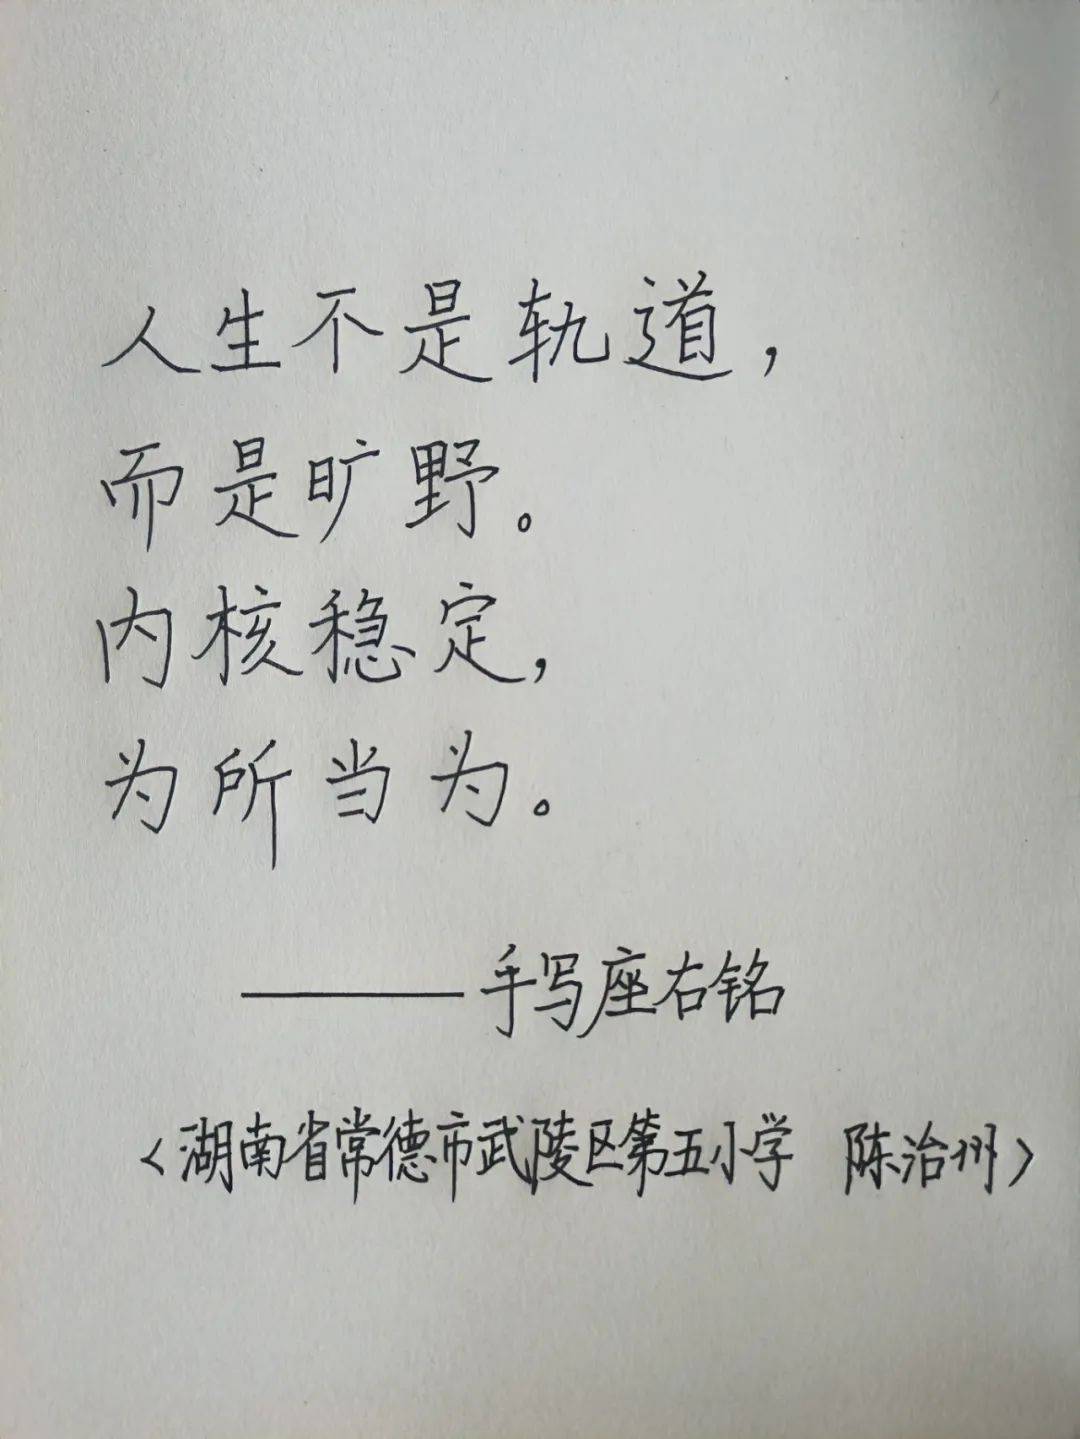 人生不是轨道，
而是旷野。
内核稳定，
为所当为。
——手写座右铭
〈湖南省常德市武陵区第五小学 陈治州〉